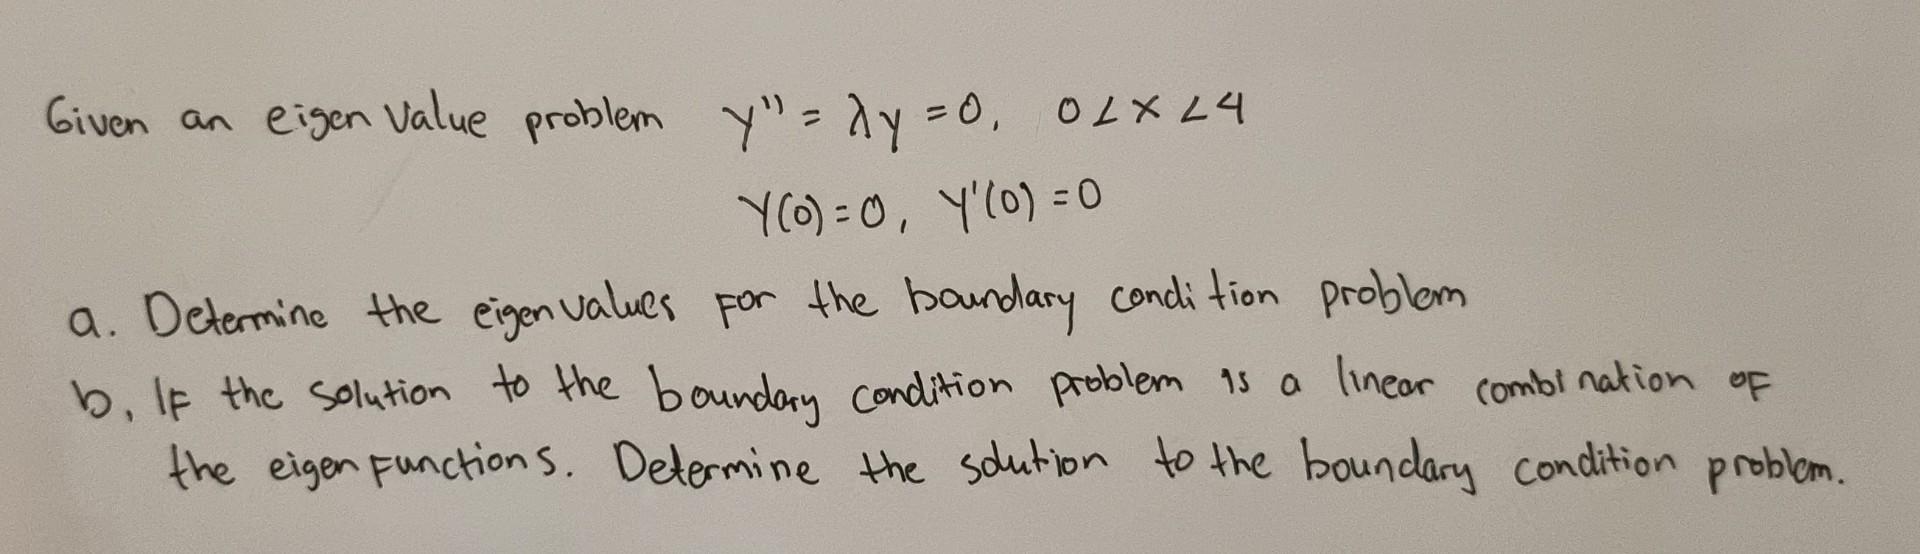 Given an eigen value problem y'' = λy = 0, 0 < x < 4
Y(0) = 0, Y'(0) = 0
a. Determine the eigenvalues for the boundary condition problem
b. If the solution to the boundary condition problem is a linear combination of
the eigen functions. Determine the solution to the boundary condition problem.